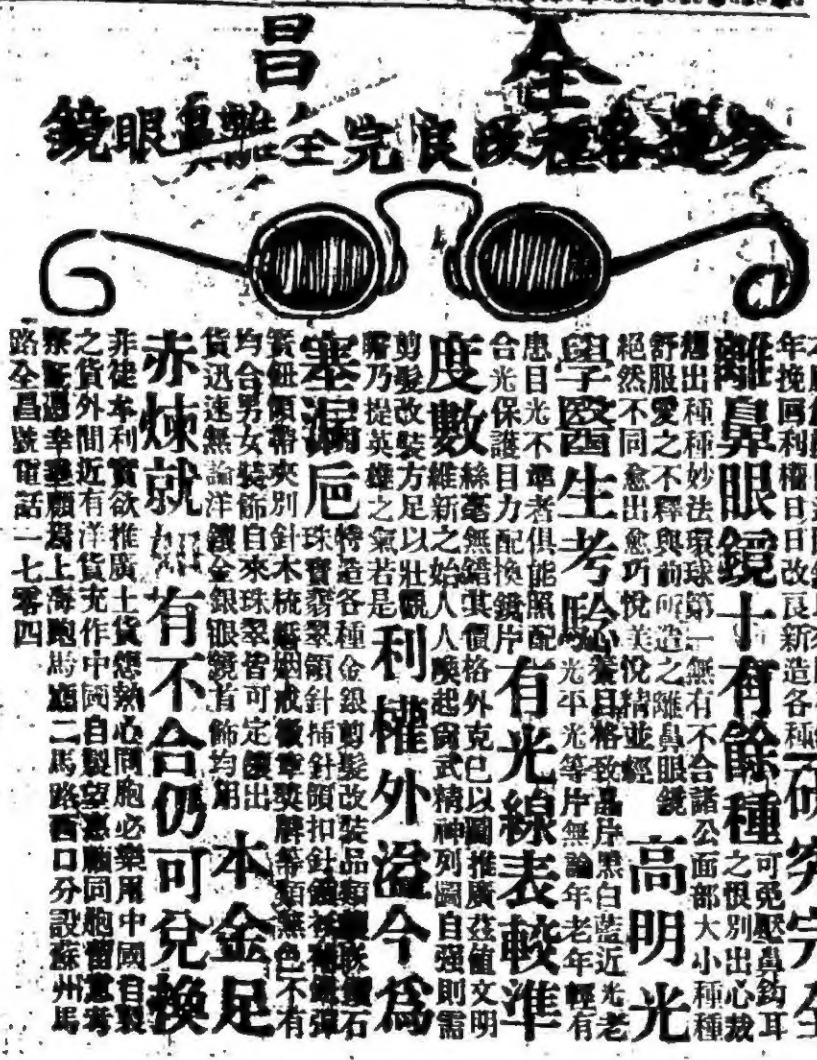 全昌
今造各種改良完全離鼻眼鏡
年挽回利權日日改良新造各種研究完全
離鼻眼鏡十有餘種可免壓鼻鈎耳
之恨別出心裁
想出種種妙法環球第一無有不合諸公面部大小種種
舒服愛之不釋與前所造之離鼻眼鏡
絕然不同愈出愈巧悅美悅精並經高明光
學醫生考驗養目格致晶片黑白藍近光老
光平光等片無論年老年輕有
患目光不準者俱能照配
合光保護目力配換鏡片有光線表較準
度數絲毫無錯其價格外克已以圖推廣茲值文明
維新之始人人喚起尚武精神列圖自强則需
剪髮改裝方足以壯觀
瞻乃提英雄之氣若是利權外溢今爲
塞漏巵特造各種金銀剪髮改裝品類鑲嵌鑽石
珠寶翡翠領針插針領扣針袖彈
簧鈕領帶夾別針木梳婚姻戒徽章奬牌等類無色不有
均合男女裝飾自來珠翠皆可定鑲出
貨迅速無論洋鑲金銀眼鏡首飾均用本金足
赤煉就如有不合仍可兌換
非徒本利實欲推廣土貨想熱心同胞必樂用中國自製
之貨外間近有洋貨充作中國自製望惠顧同胞留意考
察幸垂顧焉上海跑馬廳二馬路西口分設蘇州馬
路全昌號電話一七零四